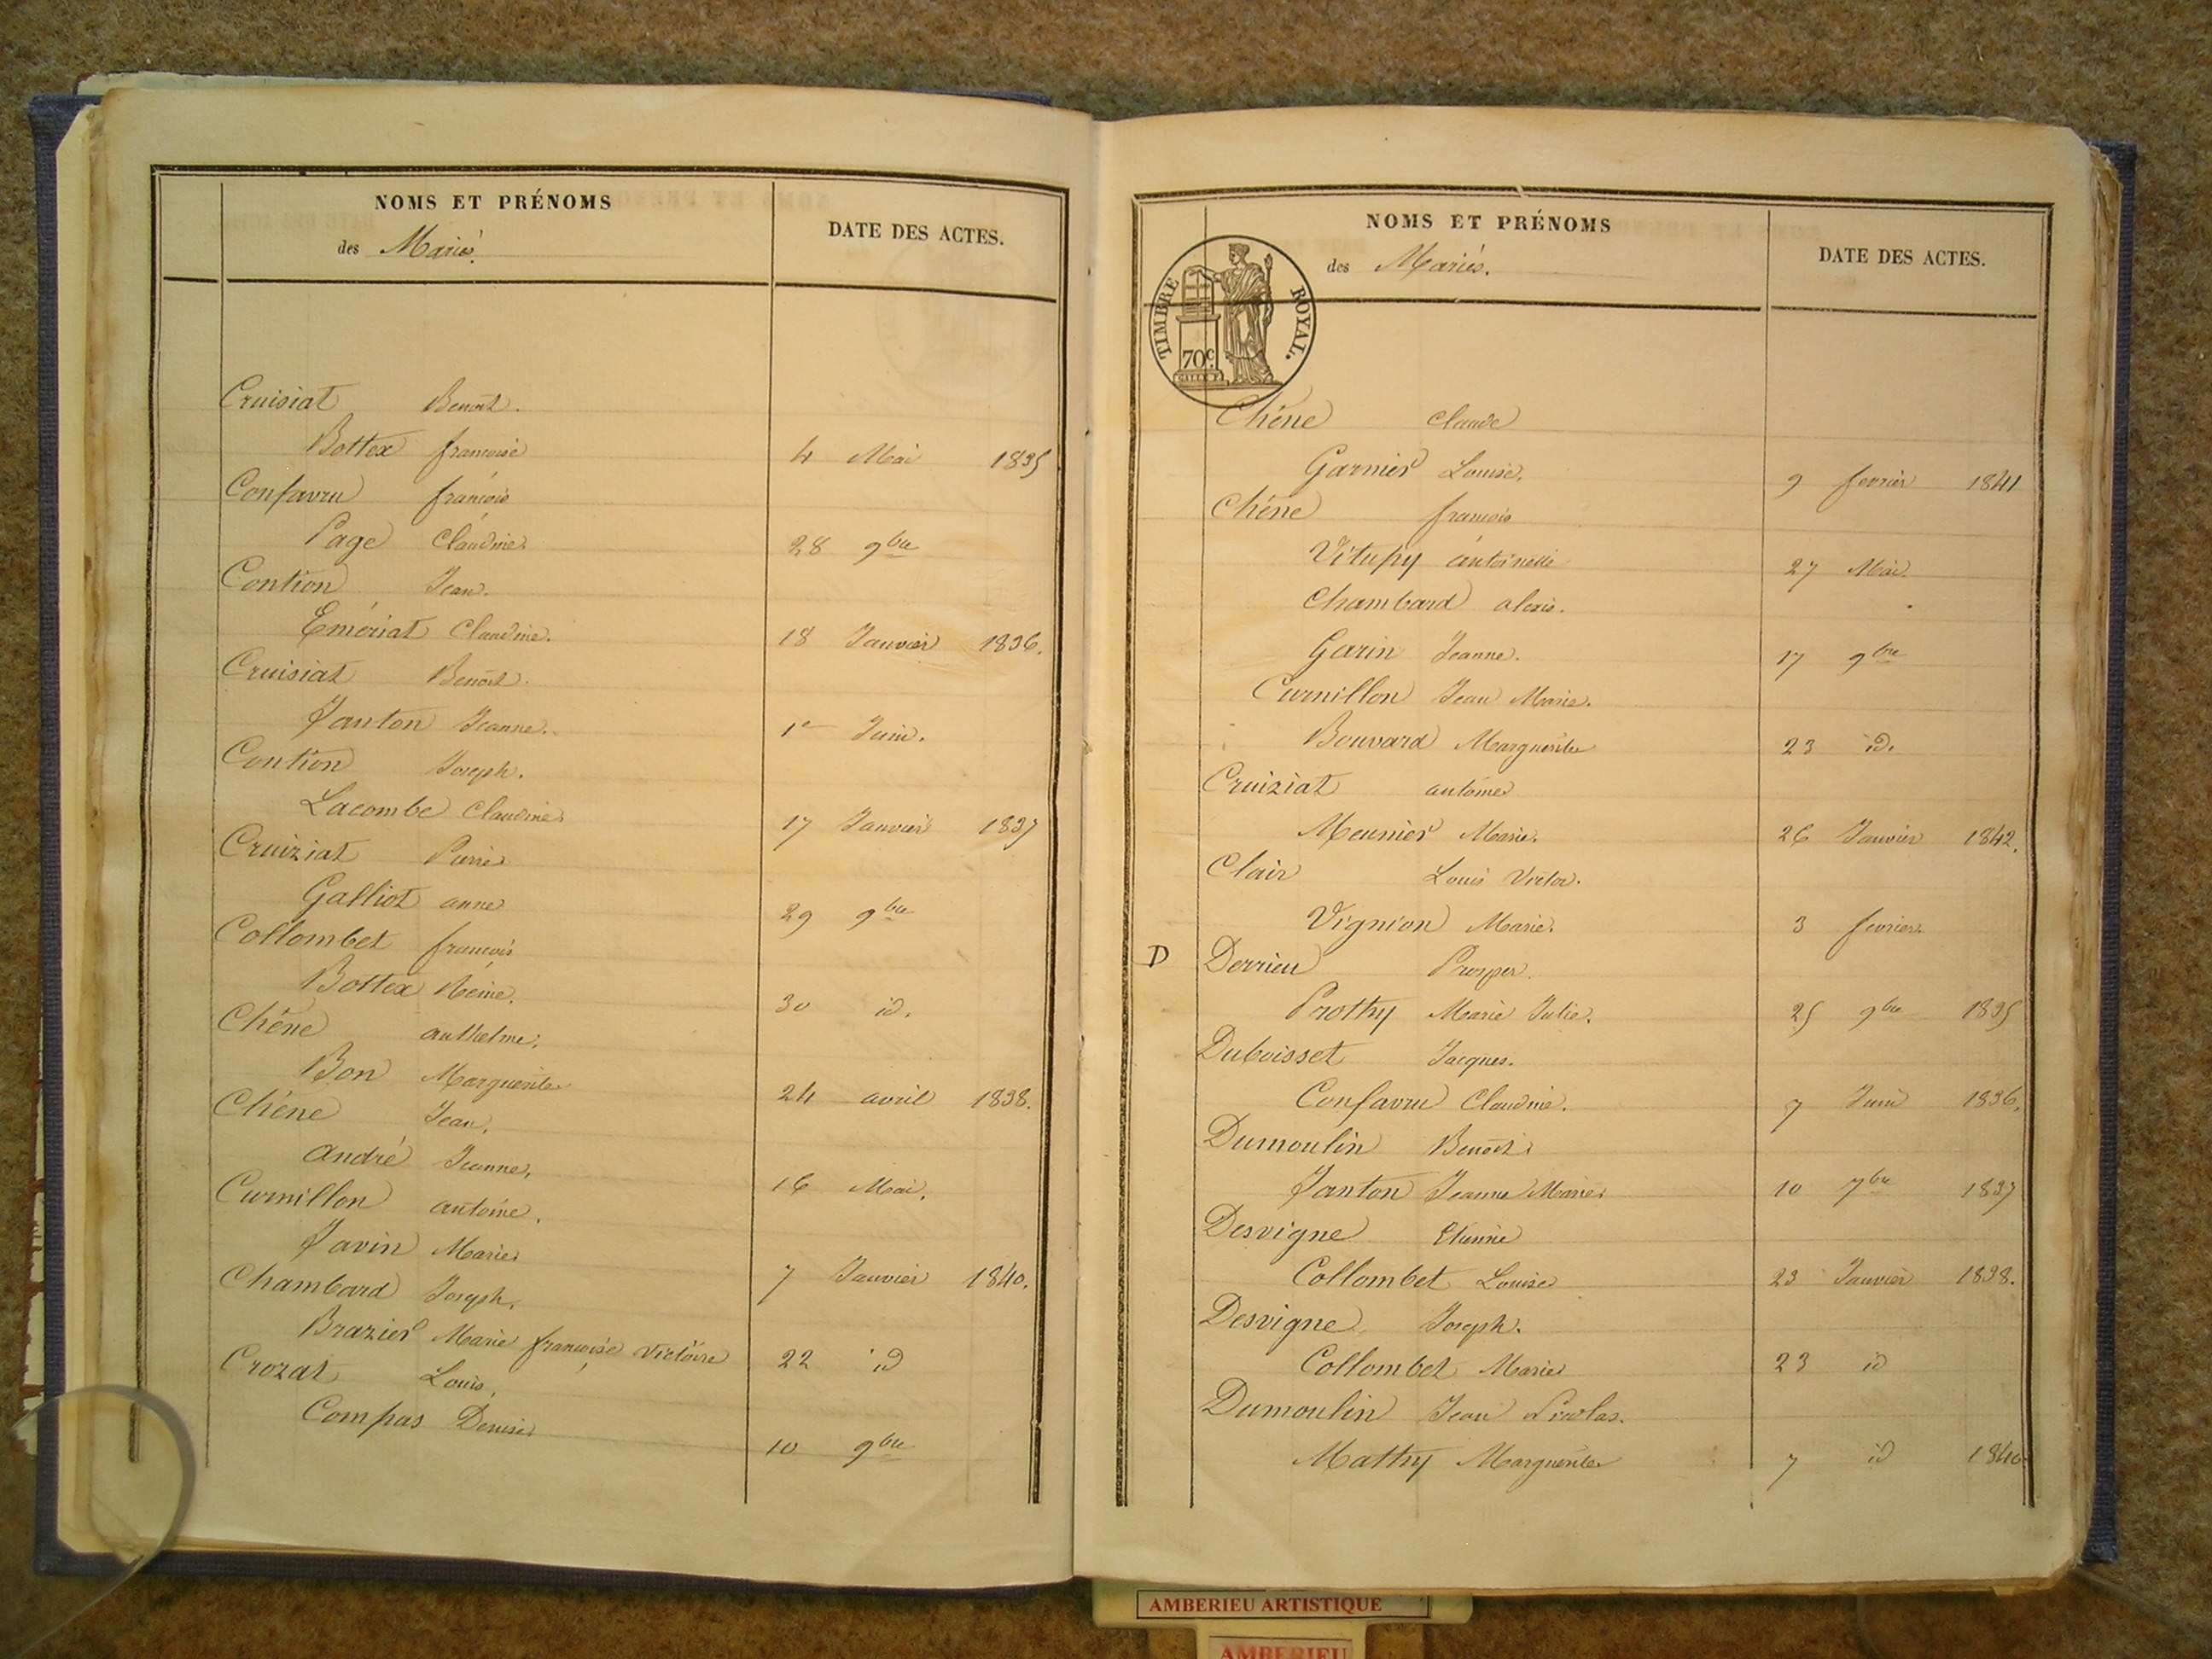 NOMS ET PRÉNOMS
des Mariés.
DATE DES ACTES.
Cruisiat Benoît.
Bottex françoise 4 Mai 1835
Confavru françois
Page Claudine. 28 9bre
Contion Jean.
Emériat Claudine. 18 Janvier 1836.
Cruisiat Benoît.
Janton Jeanne. 1er Juin.
Contion Joseph.
Lacombe Claudine 17 Janvier 1837
Cruiziat Pierre
Galliot anne 29 9bre
Collombet françois
Bottex Reine. 30 id.
Chêne anthelme.
Bon Marguerite 24 avril 1838.
Chêne Jean.
André Jeanne. 16 Mai.
Curnillon antoine.
Javin Marie 7 Janvier 1840.
Chambard Joseph.
Brazier Marie françoise Victoire 22 id
Crozat Louis,
Compas Denise 10 9bre
NOMS ET PRÉNOMS
des Mariés.
DATE DES ACTES.
TIMBRE ROYAL.
70c.
Chêne Claude
Garnier Louise. 9 fevrier 1841
Chêne françois
Vitupy antoinette 27 Mai.
Chambard alexis.
Garin Jeanne. 17 9bre
Curnillon Jean Marie.
Bouvard Marguerite 23 id.
Cruiziat antoine
Meunier Marie. 26 Janvier 1842.
Clair Louis Victor.
Vignion Marie. 3 fevrier.
D Derrieu Prosper.
Prothy Marie Julie. 25 9bre 1835
Duboisset Jacques.
Confavru Claudine. 7 Juin 1836.
Dumoulin Benoît
Janton Jeanne Marie 10 7bre 1837
Desvigne Etienne
Collombet Louise 23 Janvier 1838.
Desvigne Joseph.
Collombet Marie 23 id
Dumoulin Jean Nicolas.
Mathy Marguerite 7 id 1840
AMBERIEU ARTISTIQUE
AMBERIEU